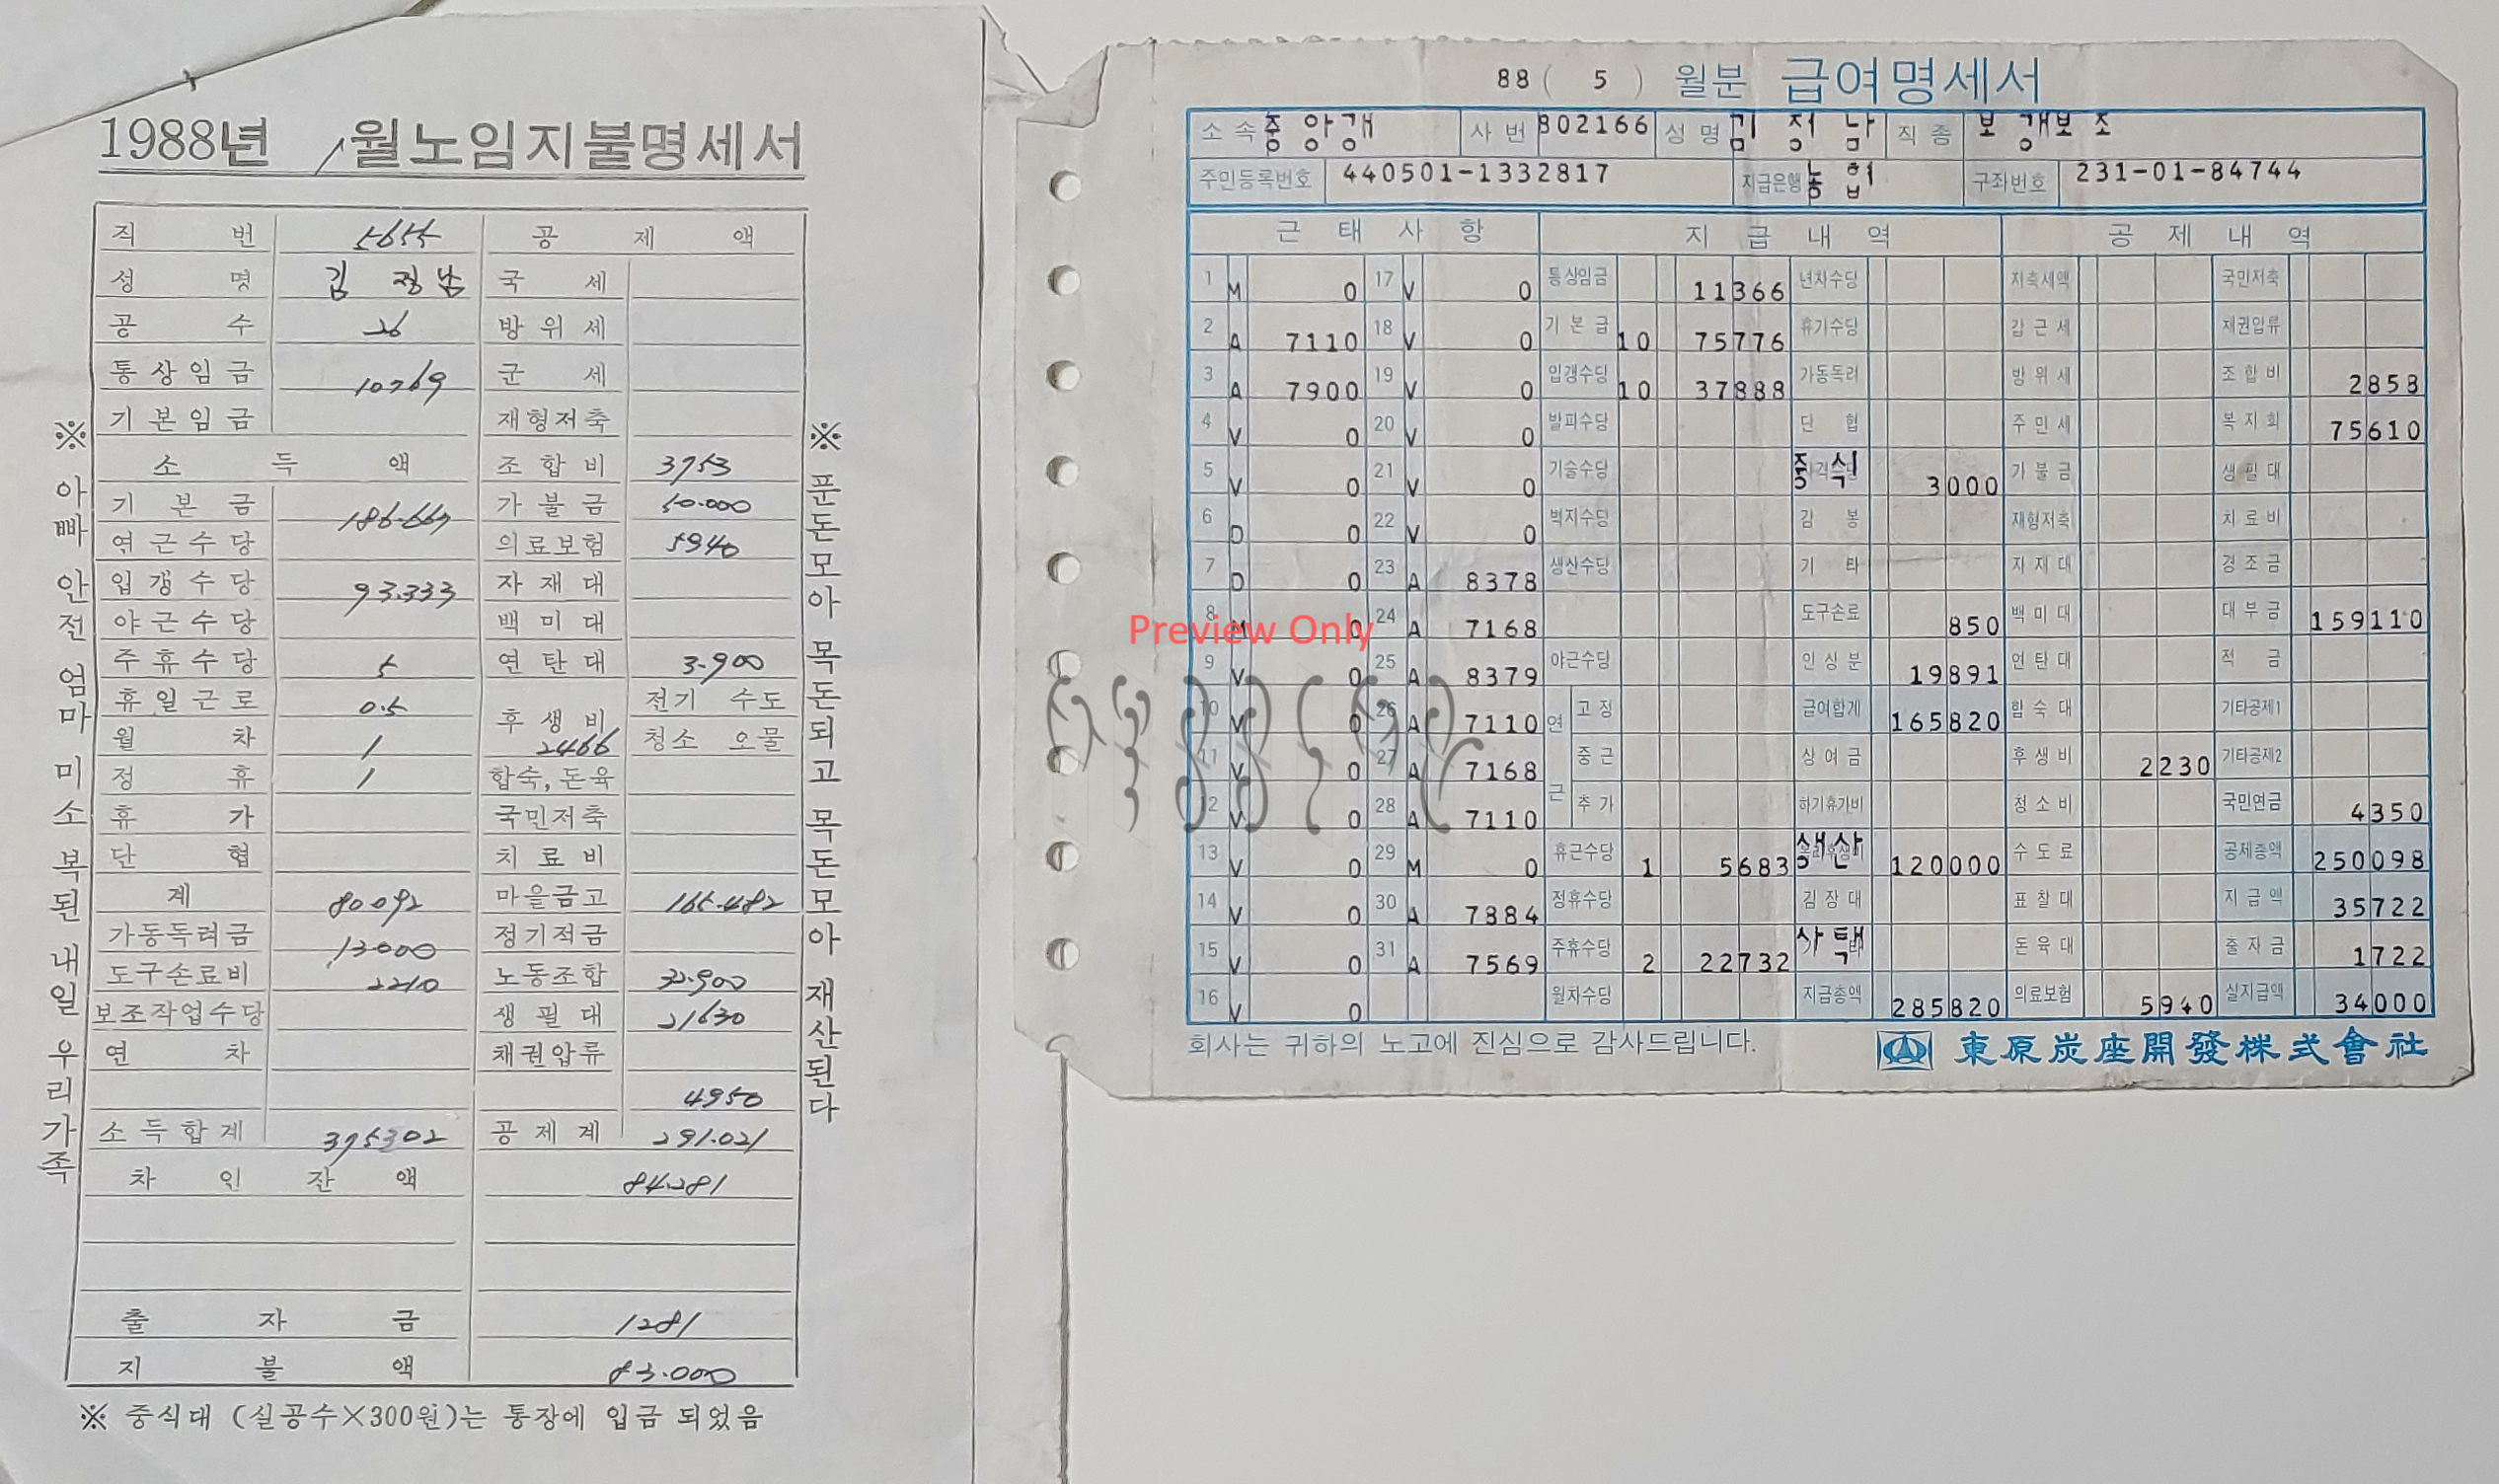 1988년 1월노임지불명세서
직 번 5655 공 제 액
성 명 김 정남 국 세
공 수 26 방 위 세
통 상 임 금 10769 군 세
기 본 임 금 재형저축
소 득 액 조 합 비 3753
기 본 금 186.667 가 불 금 50.000
연 근 수 당 의료보험 5940
입 갱 수 당 93.333 자 재 대
야 근 수 당 백 미 대
주 휴 수 당 5 연 탄 대 3.900
휴 일 근 로 0.5 후 생 비 2466 전기 수도
월 차 1 청소 오물
정 휴 1 합숙, 돈육
휴 가 국민저축
단 협 치 료 비
계 80092 마을금고 165.482
가동독려금 13000 정기적금
도구손료비 2210 노동조합 32.900
보조작업수당 생 필 대 21630
연 차 채권압류
4950
소 득 합 계 375302 공 제 계 291.021
차 인 잔 액 84.281
출 자 금 1281
지 불 액 83.000
※ 중식대 (실공수×300원)는 통장에 입금 되었음
※ 아빠 안전 엄마 미소 복된 내일 우리 가족
※ 푼돈모아 목돈되고 목돈모아 재산된다
88 ( 5 ) 월분 급여명세서
소 속 중 앙 갱 사 번 802166 성 명 김 정 남 직 종 보 갱 보 조
주민등록번호 440501-1332817 지급은행 농 협 구좌번호 231-01-84744
근 태 사 항 지 급 내 역 공 제 내 역
1 M 0 17 V 0 통상임금 11366 년차수당 저축세액 국민저축
2 A 7110 18 V 0 기 본 급 10 75776 휴가수당 갑 근 세 채권압류
3 A 7900 19 V 0 입갱수당 10 37888 가동독려 방 위 세 조 합 비 2858
4 V 0 20 V 0 발파수당 단 협 주 민 세 복 지 회 75610
5 V 0 21 V 0 기술수당 중 식 3000 가 불 금 생 필 대
6 D 0 22 V 0 벽지수당 감 봉 재형저축 치 료 비
7 D 0 23 A 8378 생산수당 기 타 자 재 대 경 조 금
8 M 0 24 A 7168 도구손료 850 백 미 대 대 부 금 159110
9 V 0 25 A 8379 야근수당 인 상 분 19891 연 탄 대 적 금
10 V 0 26 A 7110 연 고 정 급여합계 165820 합 숙 대 기타공제1
11 V 0 27 A 7168 중 근 상 여 금 후 생 비 2230 기타공제2
12 V 0 28 A 7110 근 추 가 하기휴가비 청 소 비 국민연금 4350
13 V 0 29 M 0 휴근수당 1 5683 생 산 120000 수 도 료 공제총액 250098
14 V 0 30 A 7884 정휴수당 김 장 대 표 찰 대 지 급 액 35722
15 V 0 31 A 7569 주휴수당 2 22732 사 택 돈 육 대 출 자 금 1722
16 V 0 월차수당 지급총액 285820 의료보험 5940 실지급액 34000
회사는 귀하의 노고에 진심으로 감사드립니다.
東原炭座開發株式會社
Preview Only